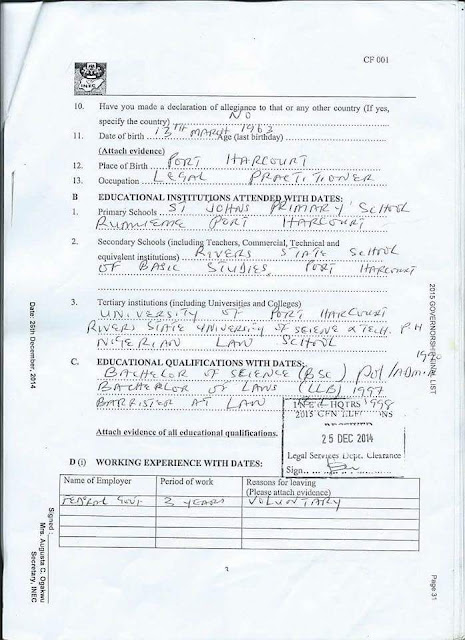 CF 001
INEC
10. Have you made a declaration of allegiance to that or any other country (If yes,
specify the country) NO
11. Date of birth 13TH MARCH 1963 Age (last birthday)
(Attach evidence)
12. Place of Birth PORT HARCOURT
13. Occupation LEGAL PRACTITIONER
B EDUCATIONAL INSTITUTIONS ATTENDED WITH DATES:
1. Primary Schools ST JOHNS PRIMARY SCHOOL
RUMUEME PORT HARCOURT
2. Secondary Schools (including Teachers, Commercial, Technical and
equivalent institutions) RIVERS STATE SCHOOL
OF BASIC STUDIES, PORT HARCOURT
3. Tertiary institutions (including Universities and Colleges)
UNIVERSITY OF PORT HARCOURT
RIVERS STATE UNIVERSITY OF SCIENCE & TECH. P.H
NIGERIAN LAW SCHOOL
C. EDUCATIONAL QUALIFICATIONS WITH DATES:
BACHELOR OF SCIENCE (BSC) POL/ADMIN
BACHERLOR OF LAWS (LLB) 1997
BARRISTER AT LAW 1998
INEC HQTRS
2015 GEN ELECTIONS
RECEIVED
25 DEC 2014
Legal Services Dept. Clearance
Sign
Attach evidence of all educational qualifications.
D (i) WORKING EXPERIENCE WITH DATES:
Name of Employer Period of work Reasons for leaving
(Please attach evidence)
FEDERAL GOVT 2 YEARS VOLUNTARY
3
Date: 26th December, 2014
Signed:
Mrs. Augusta C. Ogakwu
Secretary, INEC
2015 GOVERNORSHIP FINAL LIST
Page 31